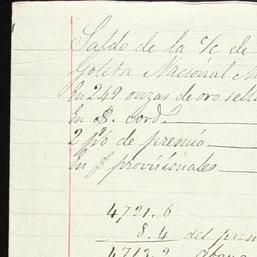 Saldo de la c/c de
Goleta Nacional M
En 249 onzas de oro sell
En $. cord.
2 p%o de premio
En $ provisionales
4721.6
8.4 del prem
4713.2 abona